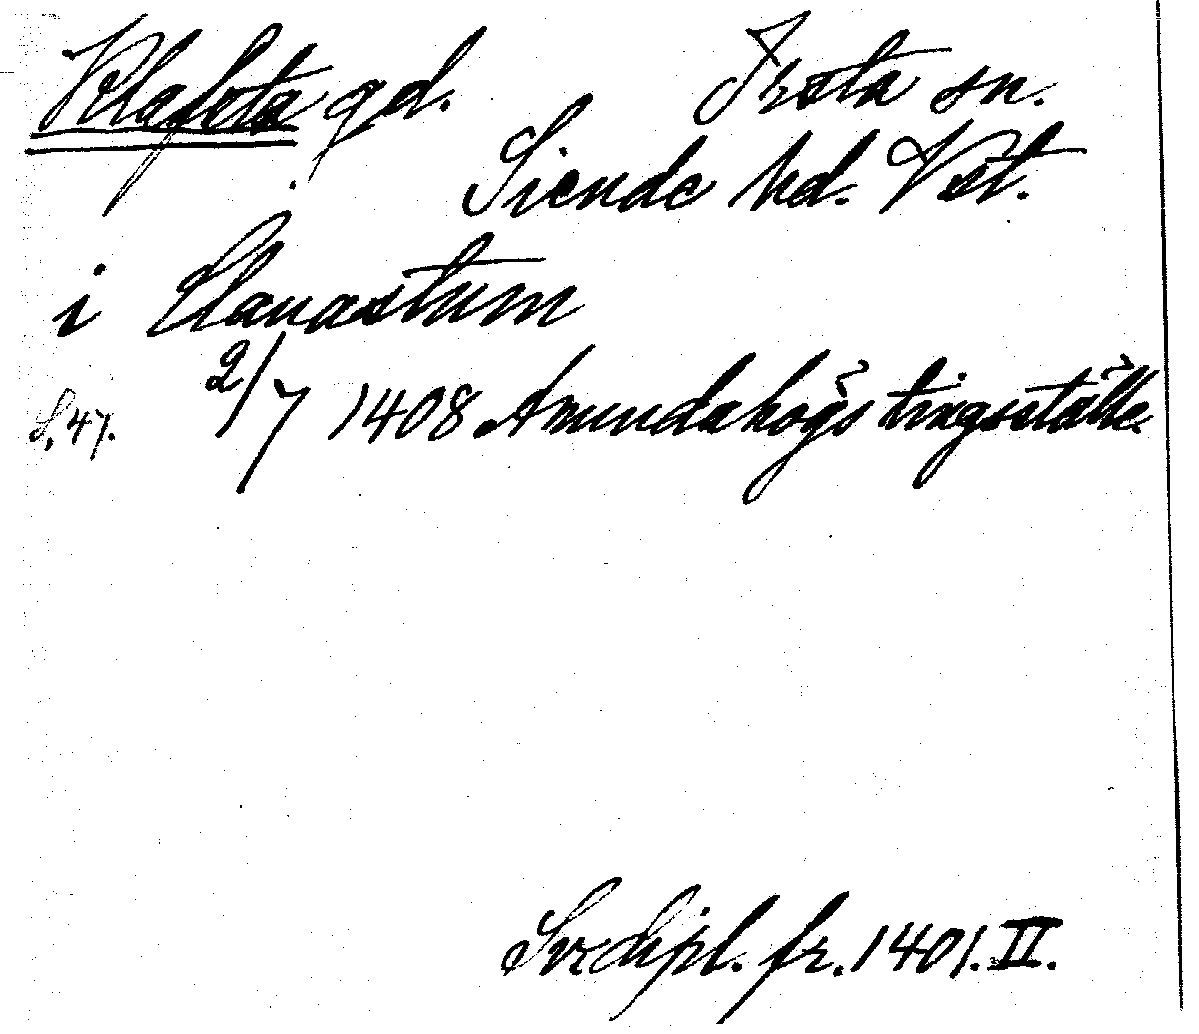 Klafsta gd. Irsta sn.
Siende hd. Vst.
i Clanastum
S. 47. 2/7 1408 Amundahögs tingsställe.
Sv. dipl. fr. 1401. II.